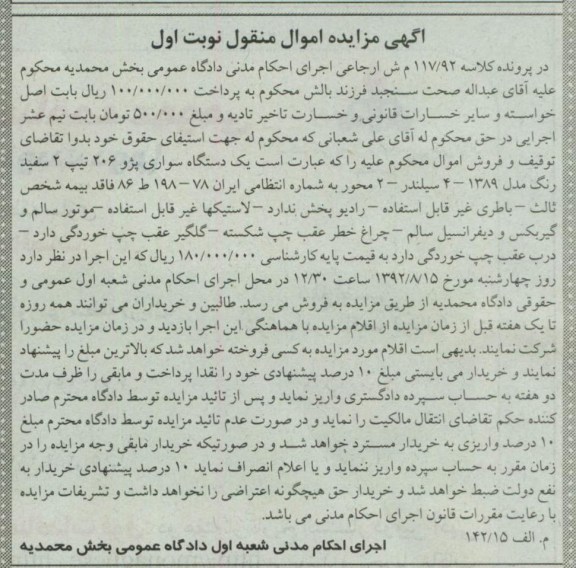 آگهی مزایده اموال منقول نوبت اول
در پرونده کلاسه ۱۱۷/۹۲ م ش ارجاعی اجرای احکام مدنی دادگاه عمومی بخش محمدیه محکوم
علیه آقای عبداله صحت سنجبد فرزند بالش محکوم به پرداخت ۱۰۰/۰۰۰/۰۰۰ ریال بابت اصل
خواسته و سایر خسارات قانونی و خسارت تاخیر تادیه و مبلغ ۵۰۰/۰۰۰ تومان بابت نیم عشر
اجرایی در حق محکوم له آقای علی شعبانی که محکوم له جهت استیفای حقوق خود بدوا تقاضای
توقیف و فروش اموال محکوم علیه را که عبارت است یک دستگاه سواری پژو ۲۰۶ تیپ ۲ سفید
رنگ مدل ۱۳۸۹ – ۴ سیلندر – ۲ محور به شماره انتظامی ایران ۷۸ – ۱۹۸ ط ۸۶ فاقد بیمه شخص
ثالث – باطری غیر قابل استفاده – رادیو پخش ندارد – لاستیکها غیر قابل استفاده – موتور سالم و
گیربکس و دیفرانسیل سالم – چراغ خطر عقب چپ شکسته – گلگیر عقب چپ خوردگی دارد –
درب عقب چپ خوردگی دارد به قیمت پایه کارشناسی ۱۸۰/۰۰۰/۰۰۰ ریال که این اجرا در نظر دارد
روز چهارشنبه مورخ ۱۳۹۲/۸/۱۵ ساعت ۱۲/۳۰ در محل اجرای احکام مدنی شعبه اول عمومی و
حقوقی دادگاه محمدیه از طریق مزایده به فروش می رسد. طالبین و خریداران می توانند همه روزه
تا یک هفته قبل از زمان مزایده از اقلام مزایده با هماهنگی این اجرا بازدید و در زمان مزایده حضورا
شرکت نمایند. بدیهی است اقلام مورد مزایده به کسی فروخته خواهد شد که بالاترین مبلغ را پیشنهاد
نمایند و خریدار می بایستی مبلغ ۱۰ درصد پیشنهادی خود را نقدا پرداخت و مابقی را ظرف مدت
دو هفته به حساب سپرده دادگستری واریز نماید و پس از تائید مزایده توسط دادگاه محترم صادر
کننده حکم تقاضای انتقال مالکیت را نماید و در صورت عدم تائید مزایده توسط دادگاه محترم مبلغ
۱۰ درصد واریزی به خریدار مسترد خواهد شد و در صورتیکه خریدار مابقی وجه مزایده را در
زمان مقرر به حساب سپرده واریز ننماید و یا اعلام انصراف نماید ۱۰ درصد پیشنهادی خریدار به
نفع دولت ضبط خواهد شد و خریدار حق هیچگونه اعتراضی را نخواهد داشت و تشریفات مزایده
با رعایت مقررات قانون اجرای احکام مدنی می باشد.
م. الف ۱۴۲/۱۵
اجرای احکام مدنی شعبه اول دادگاه عمومی بخش محمدیه